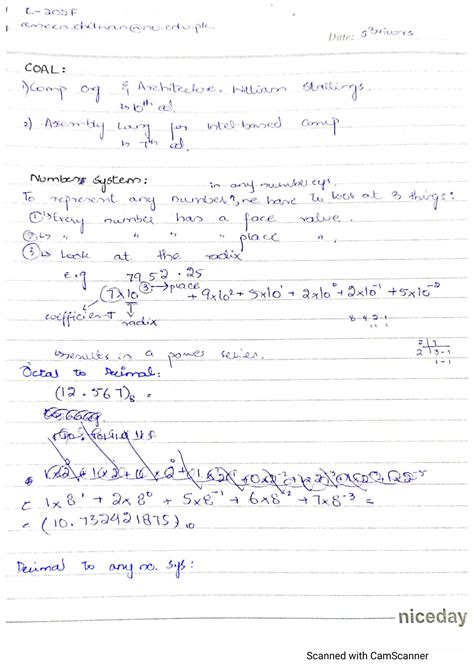 C-202F
ameen.chilwan@nu.edu.pk.
Date: 5 3hours
COAL:
1) Comp Org & Architecture, William Stallings.
↳ 6th ed.
2) Assembly Lang for Intel-based Comp
↳ 7th ed.
Number System:
in any number sys.
To represent any number, we have to look at 3 things:
① ↳ Every number has a face value.
② ↳ " " " place ".
③ ↳ Look at the radix
e.g 7952.25
7x10³ → place + 9x10² + 5x10¹ + 2x10⁰ + 2x10⁻¹ + 5x10⁻²
coefficient radix
8-4-2-1
results in a power series.
2 | 7
2 | 3-1
1-1
Octal to Decimal:
(12.567)₈ =
= 1x8¹ + 2x8⁰ + 5x8⁻¹ + 6x8⁻² + 7x8⁻³ =
= (10.732421875)₁₀
Decimal to any no. sys:
niceday
Scanned with CamScanner